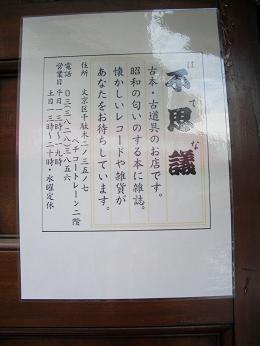 はてな
不思議
古本・古道具のお店です。
昭和の匂いのする本に雑誌。
懐かしいレコードや雑貨が
あなたをお待ちしています。
住所 文京区千駄木二ノ三五ノ七
ペチコートレーン二階
電話 〇三(三八二八)三八五六
営業日 平日 三時〜十九時
土日 一三時〜二十時・水曜定休